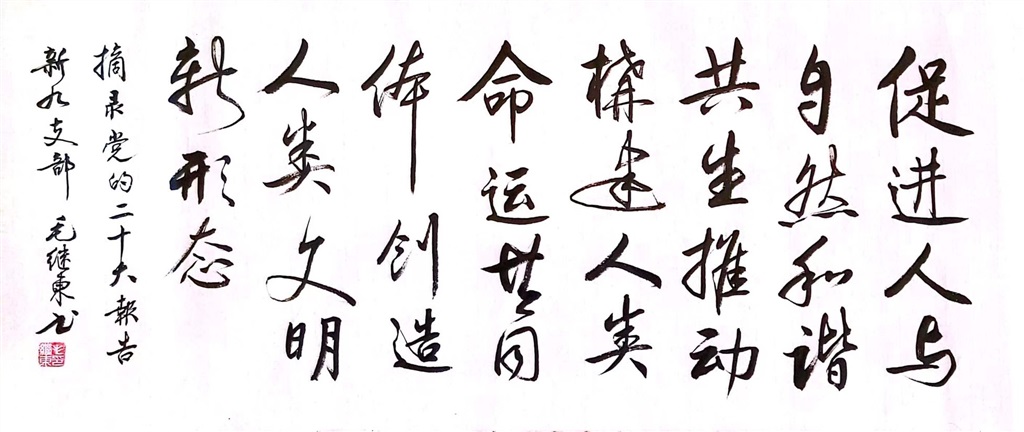 促进人与
自然和谐
共生推动
構建人类
命运共同
体创造
人类文明
新形态
摘录党的二十大報告
新九支部 毛继東书